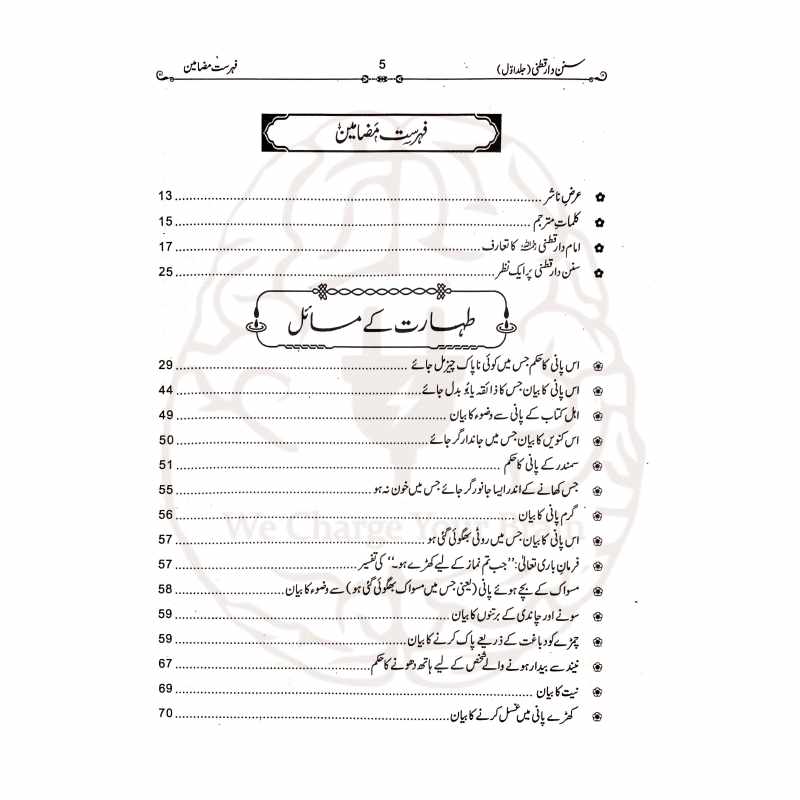 سنن دارقطنی (جلد اوّل) 5 فہرست مضامین
فہرست مضامین
عرضِ ناشر 13
کلماتِ مترجم 15
امام دارقطنی رحمہ اللہ کا تعارف 17
سنن دارقطنی پر ایک نظر 25
طہارت کے مسائل
اس پانی کا حکم جس میں کوئی ناپاک چیز مل جائے 29
اس پانی کا بیان جس کا ذائقہ یا بُو بدل جائے 44
اہل کتاب کے پانی سے وضوء کا بیان 49
اس کنویں کا بیان جس میں جاندار گر جائے 50
سمندر کے پانی کا حکم 51
جس کھانے کے اندر ایسا جانور گر جائے جس میں خون نہ ہو 55
گرم پانی کا بیان 56
اس پانی کا بیان جس میں روٹی بھگوئی گئی ہو 57
فرمانِ باری تعالیٰ: ’’جب تم نماز کے لیے کھڑے ہو۔‘‘ کی تفسیر 57
مسواک کے بچے ہوئے پانی (یعنی جس میں مسواک بھگوئی گئی ہو) سے وضوء کا بیان 58
سونے اور چاندی کے برتنوں کا بیان 59
چمڑے کو دباغت کے ذریعے پاک کرنے کا بیان 59
نیند سے بیدار ہونے والے شخص کے لیے ہاتھ دھونے کا حکم 67
نیت کا بیان 69
کھڑے پانی میں غسل کرنے کا بیان 70
We Charge Your Brain